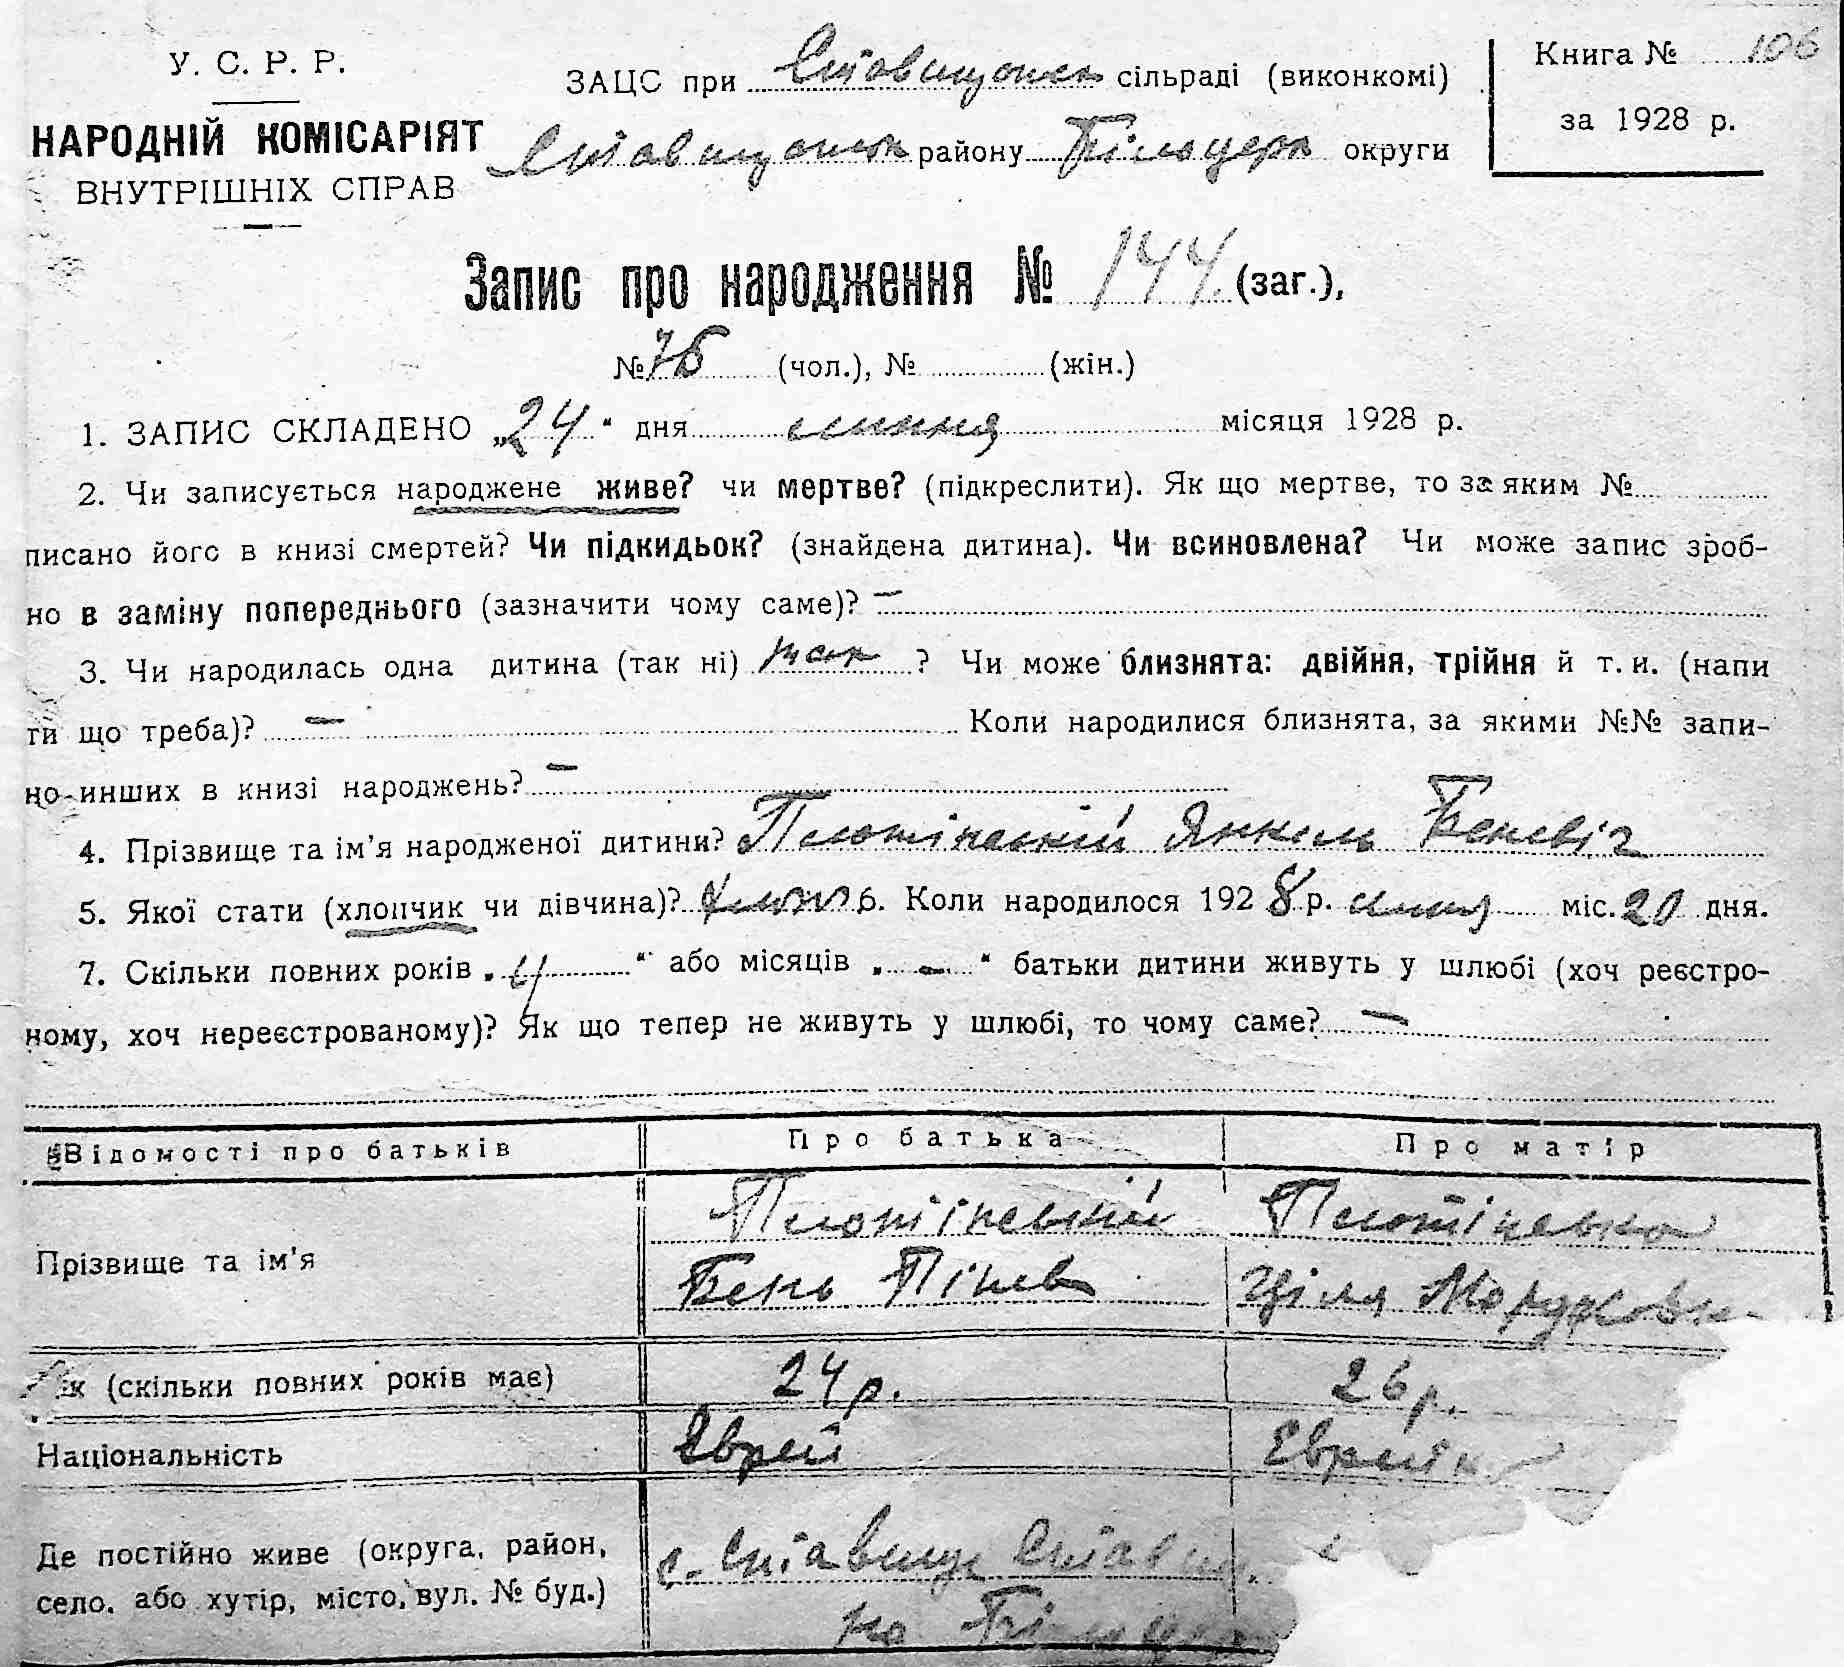 У. С. Р. Р.
НАРОДНІЙ КОМІСАРІЯТ
ВНУТРІШНІХ СПРАВ
ЗАЦС при Ставищанск сільраді (виконкомі)
Ставищанськ району Білоцерк округи
Книга № 106
за 1928 р.
Запис про народження № 144 (заг.),
№ 76 (чол.), № (жін.)
1. ЗАПИС СКЛАДЕНО „24“ дня липня місяця 1928 р.
2. Чи записується народжене живе? чи мертве? (підкреслити). Як що мертве, то за яким №
писано його в книзі смертей? Чи підкидьок? (знайдена дитина). Чи всиновлена? Чи може запис зроб-
но в заміну попереднього (зазначити чому саме)? —
3. Чи народилась одна дитина (так ні) так ? Чи може близнята: двійня, трійня й т. и. (напи
ти що треба)? — Коли народилися близнята, за якими №№ запи-
но инших в книзі народжень? —
4. Прізвище та ім'я народженої дитини? Плотінський Янкель Беневіч
5. Якої стати (хлопчик чи дівчина)? 6. Коли народилося 1928 р. липня міс. 20 дня.
7. Скільки повних років „4“ або місяців „—“ батьки дитини живуть у шлюбі (хоч реєстро-
ному, хоч нереєстрованому)? Як що тепер не живуть у шлюбі, то чому саме? —
Відомості про батьків Про батька Про матір
Прізвище та ім'я
Плотінський Плотінська
Бень Пінев Ціля
к (скільки повних років має) 24 р. 26 р.
Національність Єврей Еврейка
Де постійно живе (округа, район,
село, або хутір, місто, вул. № буд.)
с. Ставище Ставищ.